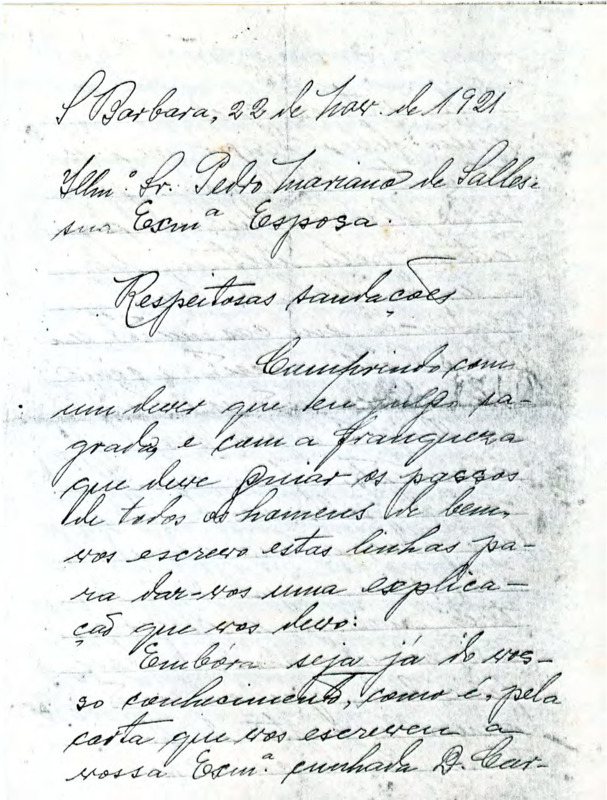 S Barbara, 22 de Nov. de 1921
Illmº. Sr. Pedro Mariano de Salles
sua Exmª Esposa.
Respeitosas saudações
Cumprindo com
um dever que eu julgo sa-
grado, e com a franqueza
que deve guiar os passos
de todos os homens de bem,
vos escrevo estas linhas pa-
ra dar-vos uma explica-
ção que vos devo:
Embóra seja já do vos-
so conhecimento, como é, pela
carta que vos escreveu a
vossa Exmª. cunhada D. Car-